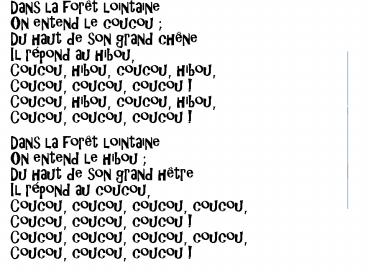 Dans la forêt lointaine
On entend le coucou ;
Du haut de son grand chêne
Il répond au hibou,
Coucou, hibou, coucou, hibou,
Coucou, coucou, coucou !
Coucou, hibou, coucou, hibou,
Coucou, coucou, coucou !
Dans la forêt lointaine
On entend le hibou ;
Du haut de son grand hêtre
Il répond au coucou,
Coucou, coucou, coucou, coucou,
Coucou, coucou, coucou !
Coucou, coucou, coucou, coucou,
Coucou, coucou, coucou !